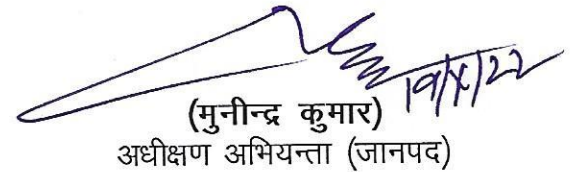 19/X/22
(मुनीन्द्र कुमार)
अधीक्षण अभियन्ता (जानपद)